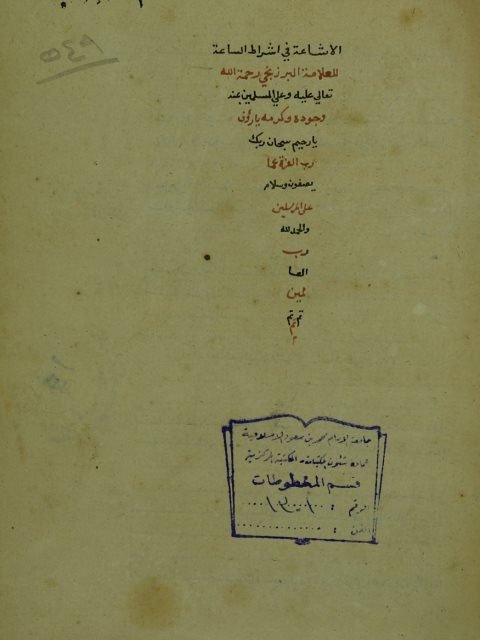 ٥٤٩
الاشاعة في اشراط الساعة
للعلامة البرزنجي رحمة الله
تعالى عليه وعلى المسلمين بمنه
وجوده وكرمه يا رؤف
يا رحيم سبحان ربك
رب العزة عما
يصفون وسلام
على المرسلين
والحمد لله
رب
العا
لمين
تم تم
تم
م
جامعة الإمام محمد بن سعود الإسلامية
عمادة شئون المكتبات - المكتبة المركزية
قسم المخطوطات
الرقم :
الفن :